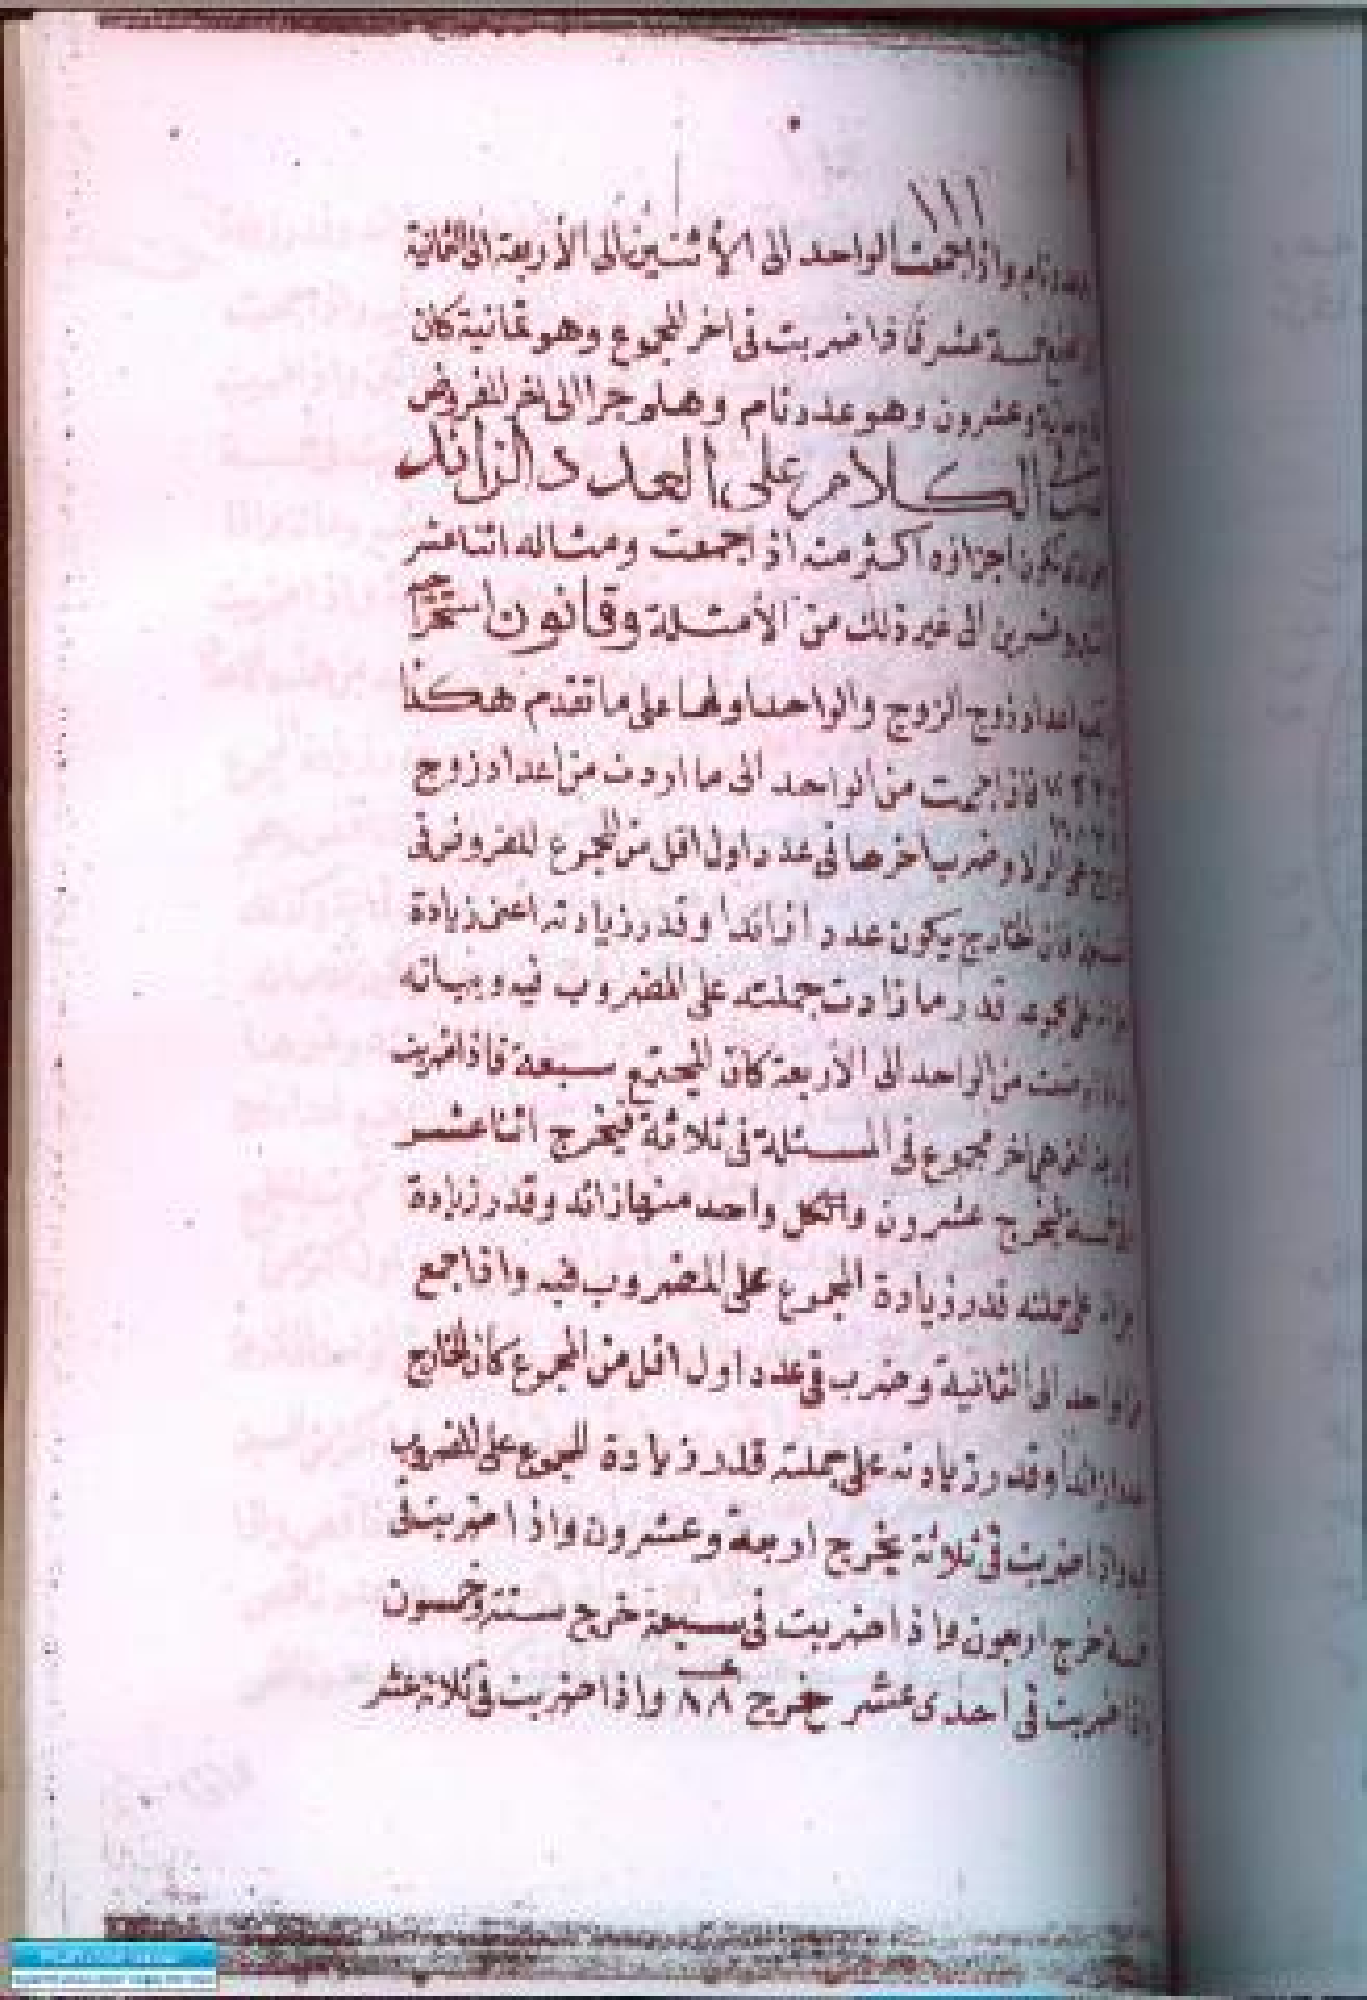 ١١١
عدد تام واذا جمعت الواحد الى الاثنين الى الأربعة الى الثمانية
خمسة عشر فاذا ضربت فى اخر المجموع وهو ثمانية كان
مائة وعشرون وهو عدد تام وهلم جرا الى اخر المفروض
الكلام على العدد الزائد
تكون اجزاؤه اكثر منه اذا جمعت ومثاله اثنا عشر
وعشرين الى غير ذلك من الأمثلة وقانون استخراج
اعداد زوج الزوج والواحد اولها على ما تقدم هكذا
فاذا جمعت من الواحد الى ما اردت من اعداد زوج
الزوج على الولاء وضرب اخرها فى عدد اول اقل من المجموع المفروض فى
فان الخارج يكون عددا زائدا وقدر زيادته اعنى زيادة
قدر ما زادت جملته على المضروب فيه وبيانه
من الواحد الى الأربعة كان المجتمع سبعة فاذا ضربت
اخر مجموع فى المسئلة فى ثلاثة فيخرج اثنا عشر
يخرج عشرون والكل واحد منها زائد وقدر زيادة
على جملته قدر زيادة المجموع على المضروب فيه واذا جمع
من واحد الى الثمانية وضرب فى عدد اول اقل من المجموع كان الخارج
عددا زائدا وقدر زيادته على جملته قدر زيادة المجموع على المضروب
فيه واذا ضربت فى ثلاثة يخرج اربعة وعشرون واذا ضربت فى
خمسة خرج اربعون واذا ضربت فى سبعة خرج ستة وخمسون
واذا ضربت فى احدى عشر خرج ٨٨ واذا ضربت فى ثلاثة عشر